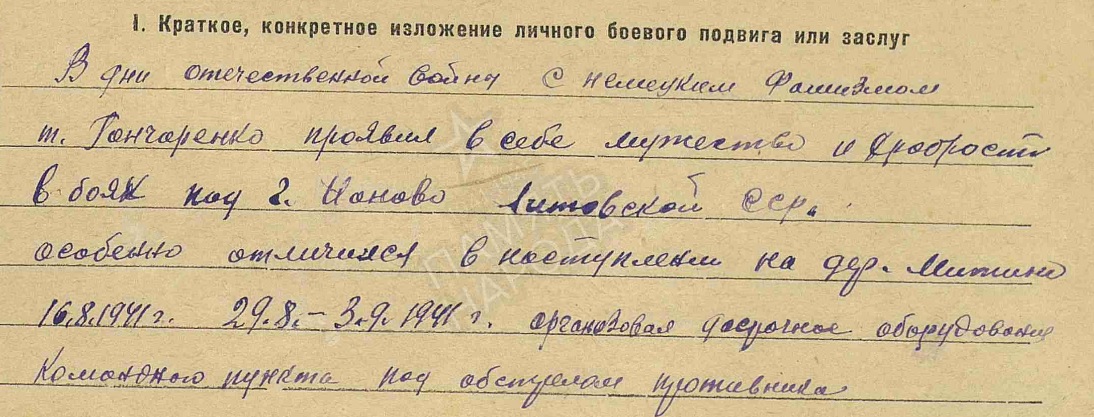 I. Краткое, конкретное изложение личного боевого подвига или заслуг
В дни отечественной войны с немецким Фашизмом
т. Гончаренко проявил в себе мужество и храбрость
в боях под г. Ионово Литовской ССР.
особенно отличился в наступлении на дер. Митино
16.8.1941 г. 29.8. – 3.9.1941 г. организовал досрочное оборудование
Командного пункта под обстрелом противника
ПАМЯТЬ
НАРОДА